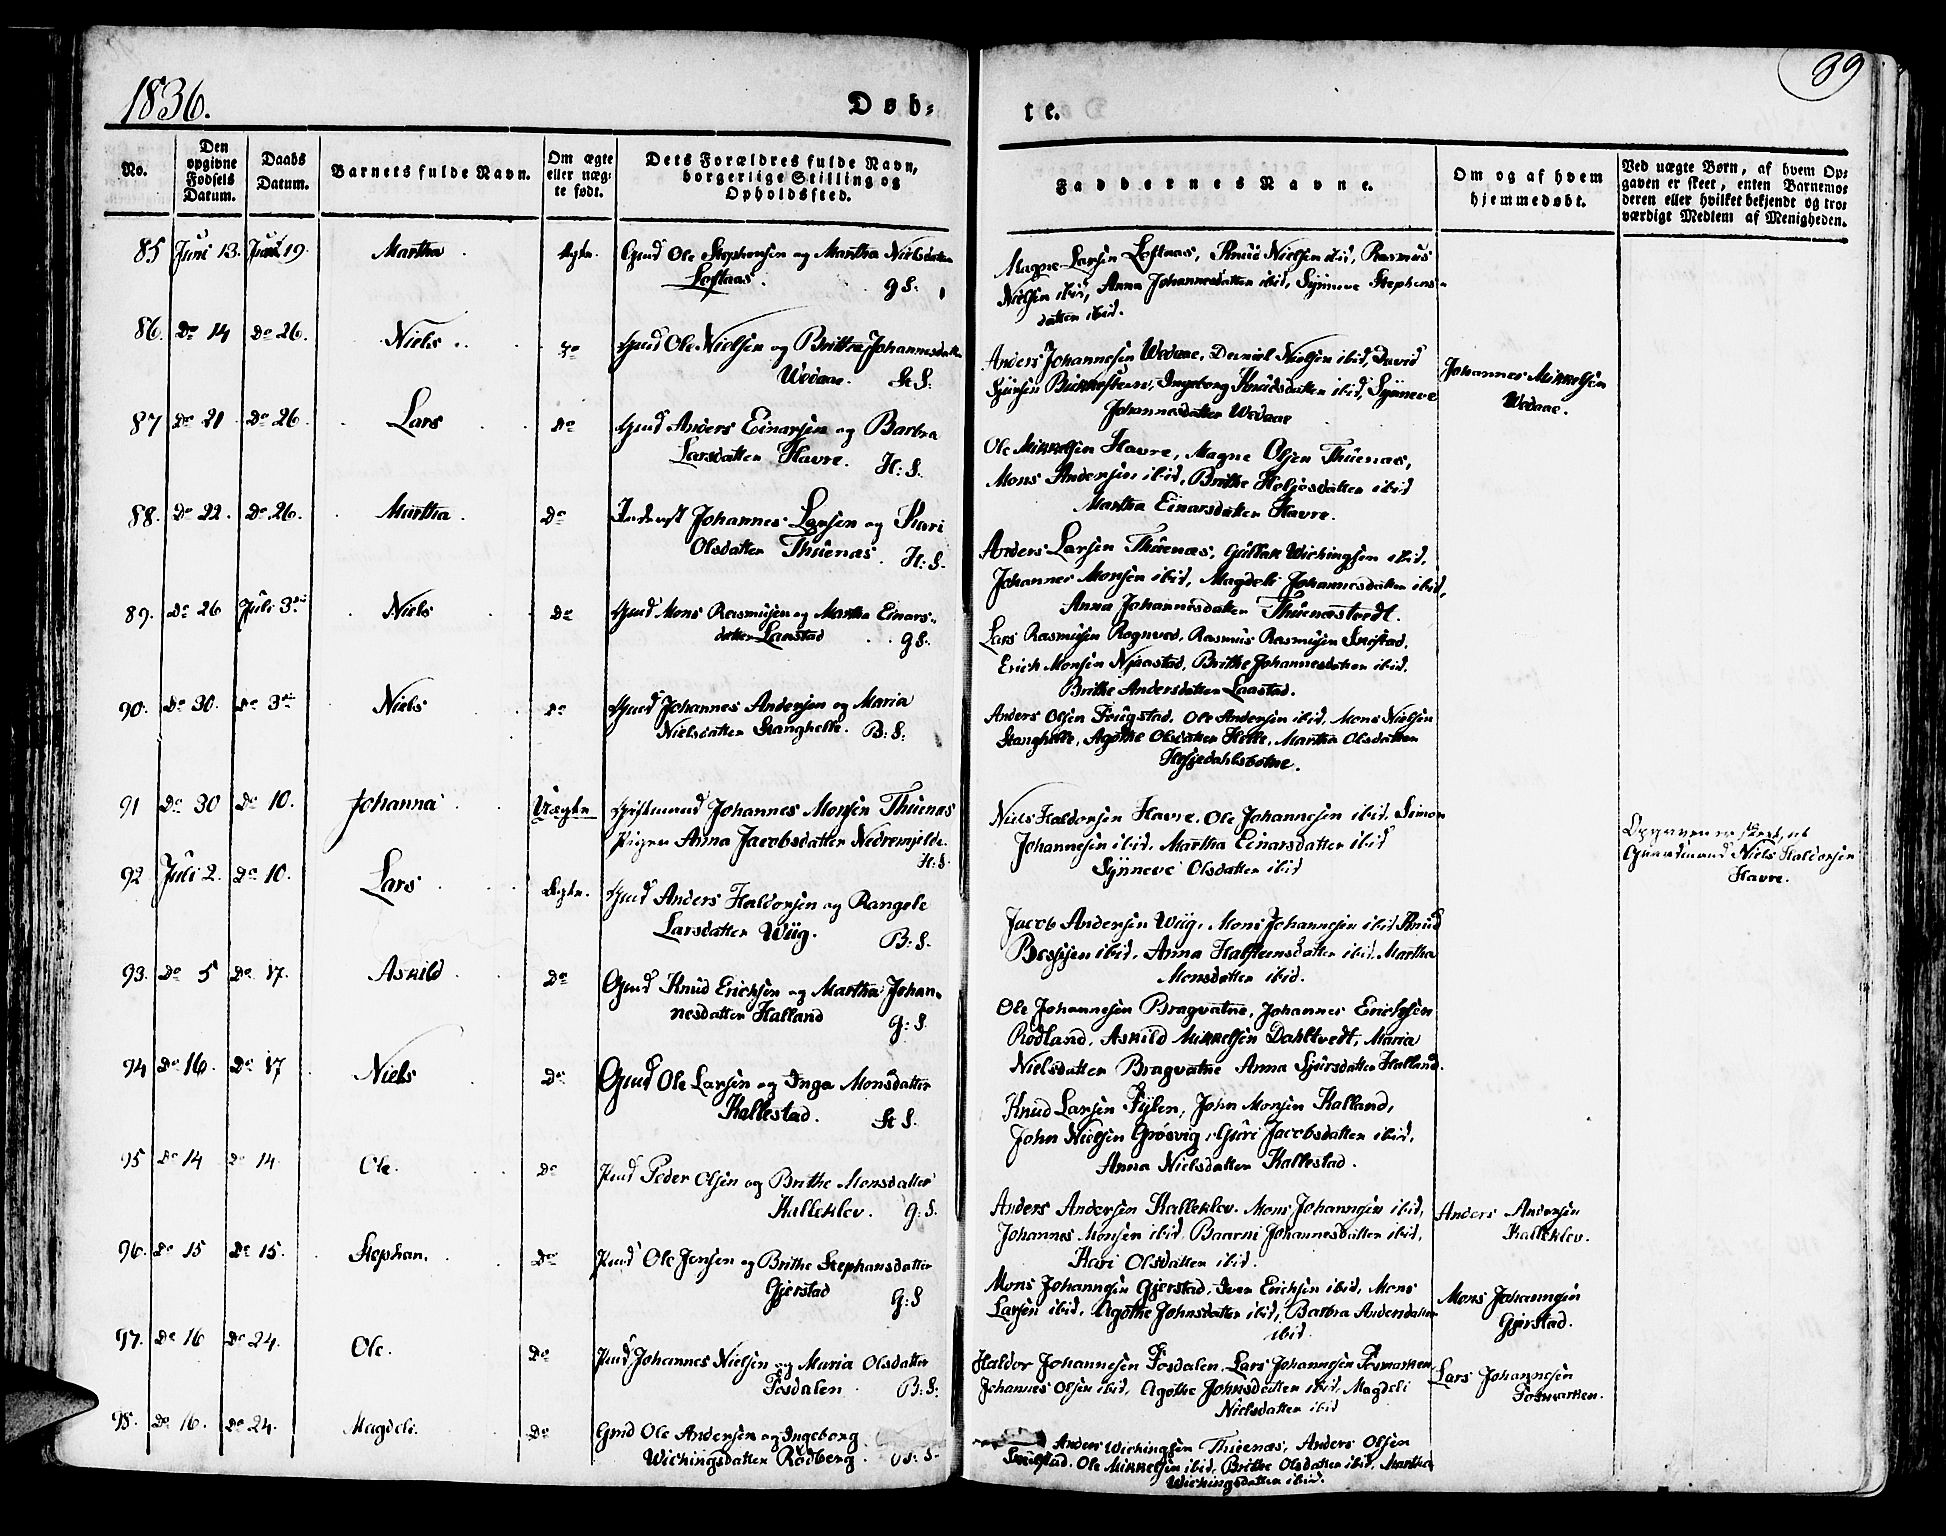 1836.
Døb-
te.
89
No.
Den opgivne Fødsels Datum.
Daabs Datum.
Barnets fulde Navn.
Om ægte eller uæg-te født.
Dets Forældres fulde Navn, borgerlige Stilling og Opholdssted.
Faddernes Navne.
Om og af hvem hjemmedøbt.
Ved uægte Børn, af hvem Op-
gaven er skeet, enten Barnemo-
deren eller hvilket bekjendt og tro-
værdigt Medlem af Menigheden.
85 Juni 13. Juni 19. Martha Ægte. Gmd Ole Stephensen og Martha Nielsdatter
Loftaas. G S.
Magne Larsen Loftaas, Knud Nielsen ibid, Rasmus
Nielsen ibid, Anna Johannesdatter ibid, Synneve Stephens-
datter ibid.
86. Do 14 Do 26. Niels Do Gmd Ole Nielsen og Brittha Johannesdatter
Wedaae. St S.
Anders Johannesen Wedaae, Daniel Nielsen ibid, David
Sjursen, Ingeborg Knudsdatter ibid, Synneve
Johannesdatter Wedaae
Johannes Mikkelsen
Wedaae.
87 Do 21 Do 26. Lars Do Gmd Anders Einarsen og Barbra
Larsdatter Havre. H: S.
Ole Mikkelsen Havre, Magne Olsen Thuenæs,
Mons Andersen ibid, Brithe Helgesdatter ibid
Martha Einarsdatter Havre.
88. Do 22. Do 26. Martha Do Inderst Johannes Larsen og Kari
Olsdatter Thuenæs. H: S.
Anders Larsen Thuenæs, Gullak Wichingsen ibid,
Johannes Monsen ibid, Magdeli Johannesdatter ibid,
Anna Johannesdatter Thuenæstvedt.
89. Do 26 Juli 3die Niels Do Gmd Mons Rasmusen og Martha Einars-
datter Laastad G S.
Lars Rasmusen Rognved, Rasmus Rasmusen,
Erich Monsen Njaastad, Brithe Johannesdatter ibid.
Brithe Andersdatter Laastad.
90. Do 30. Do 3die Niels Do Gmd Johannes Andersen og Maria
Nielsdatter Stanghelle. B: S.
Anders Olsen Fougstad, Ole Andersen ibid, Mons Nielsen
Stanghelle, Agothe Olsdatter Helle, Martha Olsdatter
Hesjedahlsbotne.
91 Do 30 Do 10. Johanna Uægte Johannes Monsen Thuenæs
Pigen Anna Jacobsdatter Nedremjelde.
H: S.
Niels Haldorsen Havre, Ole Johannesen ibid, Simon
Johannesen ibid, Martha Einarsdatter ibid
Synneve Olsdatter ibid
Opgaven er skeet, af
Gaardmand Niels Haldorsen
Havre.
92 Juli 2. Do 10. Lars Ægte. Gmd Anders Haldorsen og Rangele
Larsdatter Wiig. B: S.
Jacob Andersen Wiig, Mons Johannesen ibid Knud
ibid, Anna Halsteensdatter ibid, Martha
Monsdatter ibid.
93. Do 5 Do 17. Askild Do Gmd Knud Erichsen og Martha Johan-
nesdatter Halland G: S.
Ole Johannesen Bragvatne, Johannes Erichsen
Rødland, Askild Mikkelsen Dahltvedt, Maria
Nielsdatter Bragvatne Anna Sjursdatter Halland.
94 Do 16. Do 17 Niels Do Gmd Ole Larsen og Inga Monsdatter
Kallestad. St S.
Knud Larsen Fylen, John Monsen Kalland,
John Nielsen Grøsvig, Guri Jacobsdatter ibid,
Anna Nielsdatter Kallestad.
95 Do 14 Do 14. Ole. Do Pmd Peder Olsen og Brithe Monsdatter
Kalleklev. G: S.
Anders Andersen Kalleklev. Mons Johannesen ibid,
Johannes Monsen ibid, Baarni Johannesdatter ibid,
Kari Olsdatter ibid.
Anders Andersen
Kalleklev.
96. Do 15 Do 15. Stephan. Do Pmd Ole Jensen og Brithe Stephansdatter
Gjerstad G: S
Mons Johannesen Gjerstad, Iver Erichsen ibid, Mons
Larsen ibid, Agothe Johnsdatter ibid, Barbra Andersdatter
ibid.
Mons Johannesen
Gjerstad.
97. Do 16 Do 24. Ole. Do Pmd Johannes Nielsen og Maria Olsdatter
Fosdalen. B: S:
Haldor Johannesen Fosdalen, Lars Johannesen Fosmarken,
Johannes Olsen ibid, Agothe Johnsdatter ibid, Magdeli
Nielsdatter ibid
Lars Johannesen
Fosmarken.
98. Do 16. Do 24. Magdeli. Do Gmd Ole Andersen og Ingeborg
Wichingsdatter Rødberg. S.
Anders Wichingsen Thuenæs, Anders Olsen
Ole Mikkelsen ibid, Brithe Olsdatter ibid, Martha
Wichingsdatter ibid.